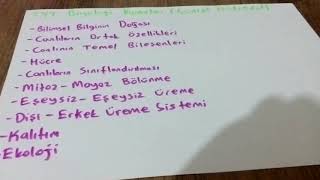 TYT Biyoloji Konuları
- Bilimsel Bilginin Doğası
- Canlıların Ortak Özellikleri
- Canlının Temel Bileşenleri
- Hücre
- Canlıların Sınıflandırılması
- Mitoz - Mayoz Bölünme
- Eşeysiz - Eşeysiz Üreme
- Dişi - Erkek Üreme Sistemi
- Kalıtım
- Ekoloji